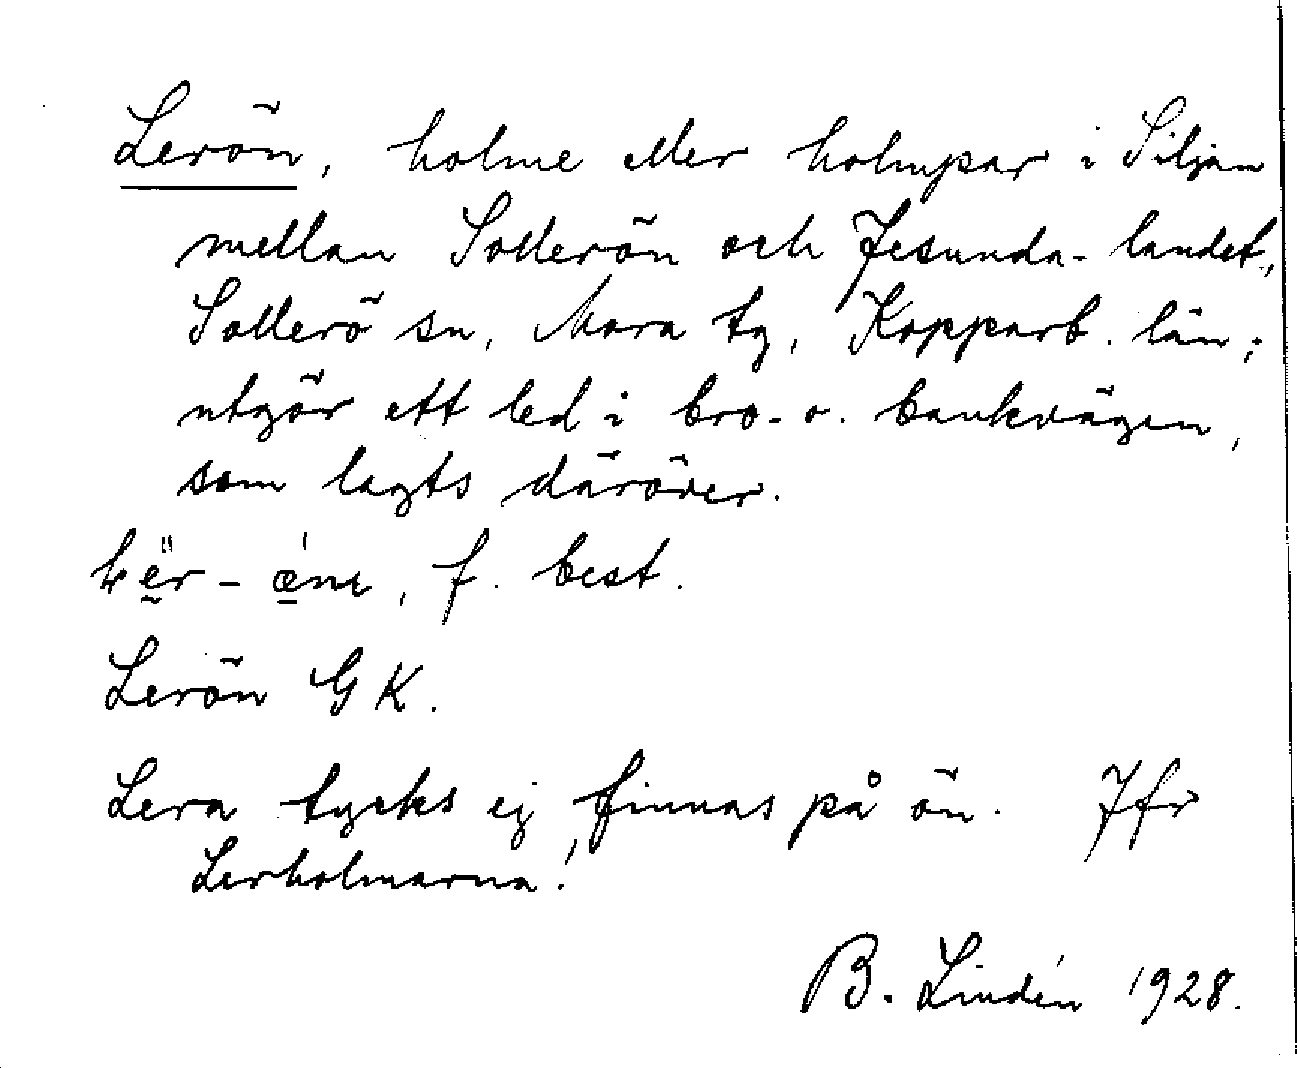 Lerön, holme eller holmpar i Siljan
mellan Sollerön och Jesunda-landet,
Sollerö sn, Mora tg, Kopparb. län;
utgör ett led i bro- o. bankvägen,
som lagts däröver.
f. best.
Lerön GK.
Lera tycks ej finnas på ön. Jfr
Lerholmarna!
B. Lindén 1928.